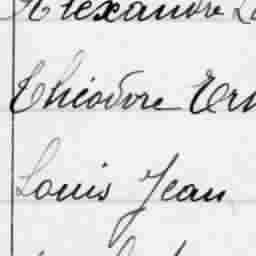 Alexandre
Théodore
Louis Jean